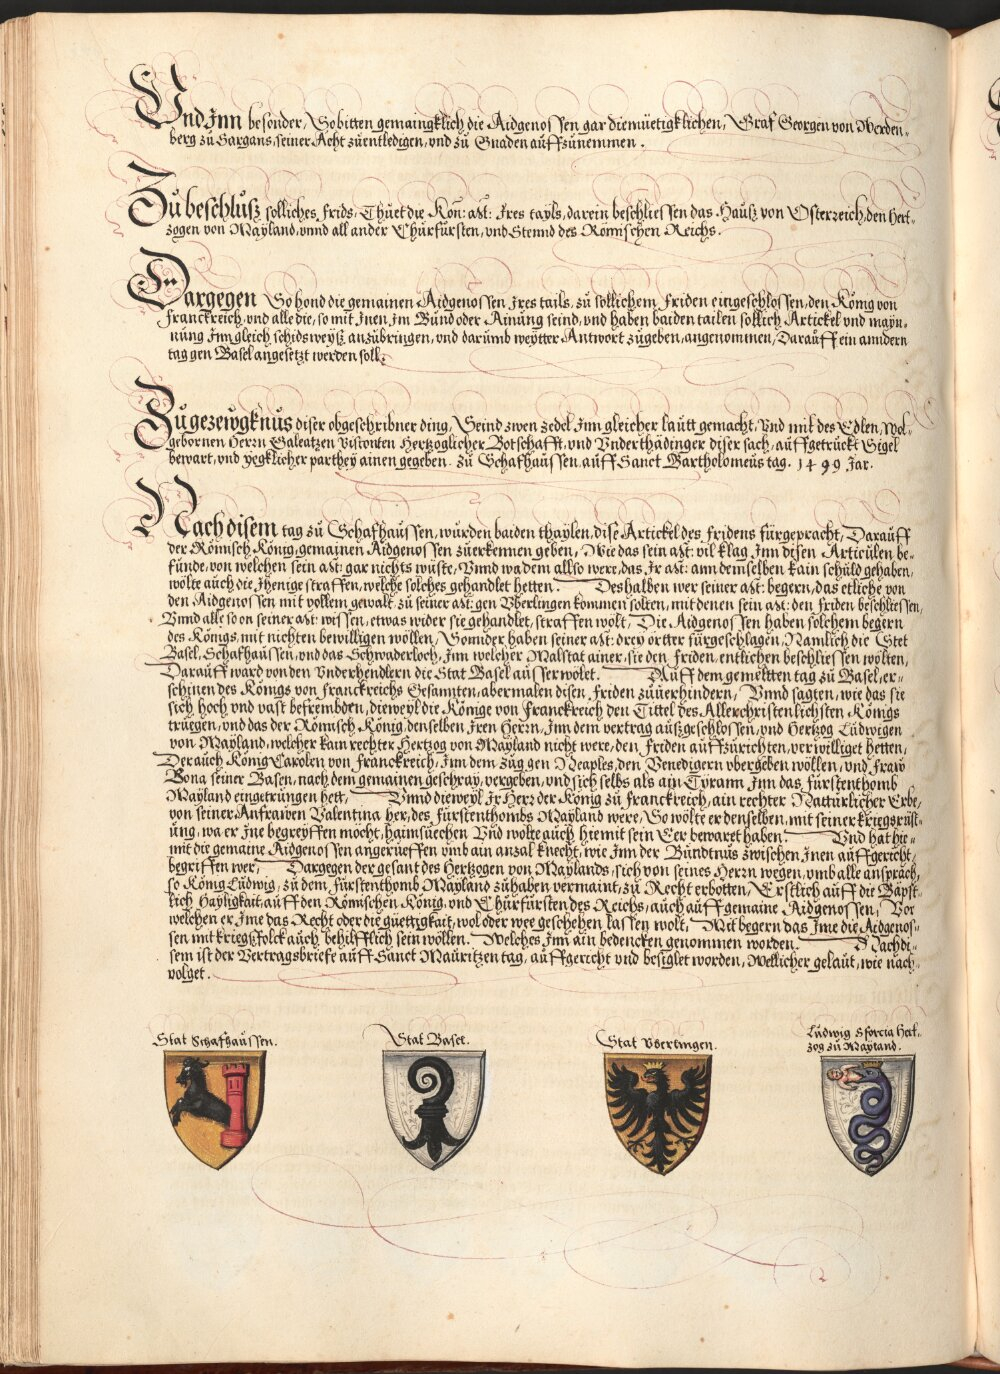 Und Inn besonder, So bitten gemaingklich die Aidgenossen gar diemüetigklichen, Graf Georgen von Werden-
berg zü Sargans, seiner Acht züentledigen, und zü Gnaden auffzünemmen.
Zü beschlusz solliches Frids, Thüet die Kön: Mt: Ires tayls, darein beschliessen das Hausz von Osterreich, den Hert-
zogen von Mayland, unnd all ander Chürfürsten, und Stennd des Römischen Reichs.
Dargegen So hond die gemainen Aidgenossen Ires tails, zü sollichem Friden eingeschlossen, den König von
Franckreich, und alle die, so mit Inen Im Bünd oder Ainüng seind, und haben baiden tailen sollich Artickel und mayn-
nüng Inn gleich schidsweysz anzübringen, und darümb weytter Antwort zügeben, angenommen, Daraüff ein anndern
tag gen Basel angesetzt werden soll.
Zü gezewgknus diser obgeschribner ding, Seind zwen zedel Inn gleicher laütt gemacht, Und mit des Edlen, Wol-
gebornen Herrn Galeatzen Visconten Hertzoglicher Botschafft, und Underthädinger diser sach, auffgetrückt Sigel
bewart, und yegklicher parthey ainen gegeben. Zü Schafhaüssen auff Sanct Bartholomeüs tag. 1499 Jar.
Nach disem tag zü Schafhaüssen, würden baiden thaylen, dise Artickel des Fridens fürgepracht, Daraüff
der Römisch König, gemainen Aidgenossen züerkennen geben, Wie das sein Mt: vil klag Inn disen Articülen be-
funde, von welchen sein Mt: gar nichts wüste, Unnd wa dem allso were, das Ir Mt: ann demselben kain schüld gehaben,
wölte auch die Jhenige straffen, welche solches gehandlet hetten. Deshalben wer seiner Mt: begern, das etliche von
den Aidgenossen mit vollem gewalt zü seiner Mt: gen Uberlingen kommen solten, mit denen sein Mt: den Friden beschliessen,
Unnd alle so on seiner Mt: wissen, etwas wider sie gehandlet, straffen wölt, Die Aidgenossen haben solchem begern
des Königs, mit nichten bewilligen wöllen, Sonnder haben seiner Mt: drey örtter fürgeschlagen, Namlich die Stet
Basel, Schafhaüssen, und das Schwaderloch, Inn welcher Malstat ainer, sie den Friden, entlichen beschliessen wölten,
Daraüff ward von den Underhendlern die Stat Basel aüsserwölet. Aüff dem gemeltten tag zü Basel, er-
schinen des Königs von Franckreichs Gesannten, abermalen disen Friden züuerhindern, Unnd sagten, wie das sie
sich hoch und vast befrembden, dieweyl die Könige von Franckreich den Tittel des Allerchristenlichsten Königs
trüegen, und das der Römisch König, denselben Iren Herrn, Inn dem vertrag außgeschlossen, und Hertzog Lüdwigen
von Mayland, welcher kain rechter Hertzog von Mayland nicht were, den Friden auffzürichten, verwilliget hetten,
Der auch König Carolen von Franckreich, Inn dem züg gen Neaples, den Venedigern ubergeben wöllen, und Fraw
Bona seiner Basen, nach dem gemainen geschray, vergeben, und sich selbs als ain Tyrann Inn das fürstenthomb
Mayland eingetrungen hett, Unnd dieweyl Ir Herr der König zü Franckreich, ain rechter Natürlicher Erbe,
von seiner Anfrawen Valentina her, des fürstenthombs Mayland were, So wölte er denselben, mit seiner kriegsrüst-
üng, wa er Ine begreyffen möcht, haimsüechen Und wölte auch hiemit sein Eer bewaret haben. Und hat hie-
mit die gemaine Aidgenossen angerüeffen umb ain anzal knecht, wie Inn der Bündtnüs zwischen Inen auffgericht,
begriffen wer, Dargegen der gesant des Hertzogen von Maylands, sich von seines Herrn wegen, umb alle ansprach,
so König Lüdwig, zü dem fürstenthomb Mayland zühaben vermaint, zü Recht erbotten, Erstlich auff die Bäpst-
lich Hayligkait, auff den Römischen König, und Chürfürsten des Reichs, auch auff gemaine Aidgenossen, Vor
welchen er Ime das Recht oder die güettigkait, wol oder wee geschehen lassen wölt, Mit begern das Ime die Aidgenos-
sen mit kriegsfolck auch behilfflich sein wöllen. Welches Inn ain bedencken genommen worden. Nach di-
sem ist der Vertragsbriefe auff Sanct Mauritzen tag, auffgericht und besiglet worden, Wellicher gelaüt, wie nach-
volget.
Stat Schafhaüssen.
Stat Basel.
Stat Uberlingen.
Lüdwig Sforcia Hert-
zog zü Mayland.